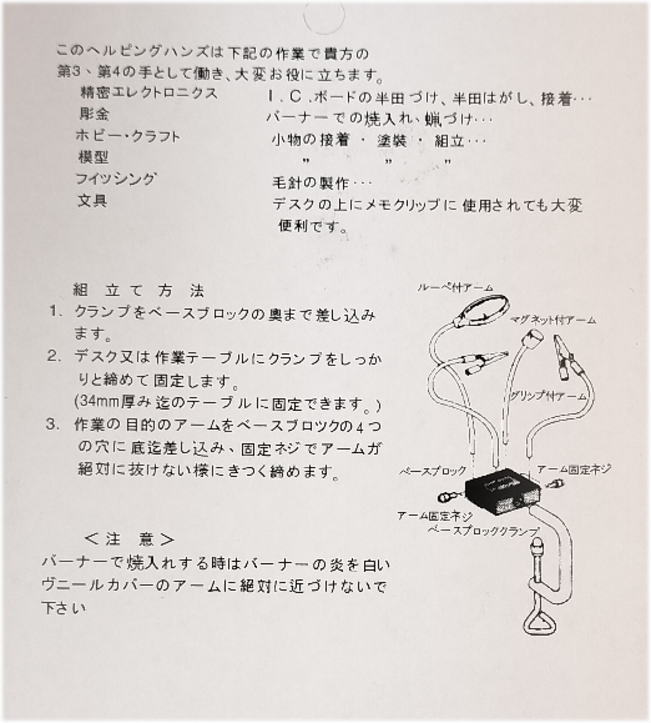 このヘルピングハンズは下記の作業で貴方の
第3、第4の手として働き、大変お役に立ちます。
精密エレクトロニクス　I.C.ボードの半田づけ、半田はがし、接着…
彫金　バーナーでの焼入れ、蝋づけ…
ホビー・クラフト　小物の接着・塗装・組立…
模型　〃　〃　〃
フイッシング　毛針の製作…
文具　デスクの上にメモクリップに使用されても大変
便利です。
組立て方法
1. クランプをベースブロックの奥まで差し込み
ます。
2. デスク又は作業テーブルにクランプをしっか
りと締めて固定します。
(34mm厚み迄のテーブルに固定できます。)
3. 作業の目的のアームをベースブロツクの4つ
の穴に底迄差し込み、固定ネジでアームが
絶対に抜けない様にきつく締めます。
ルーペ付アーム
マグネット付アーム
グリップ付アーム
ベースブロック
アーム固定ネジ
アーム固定ネジ
ベースブロッククランプ
＜注　意＞
バーナーで焼入れする時はバーナーの炎を白い
ヴニールカバーのアームに絶対に近づけないで
下さい